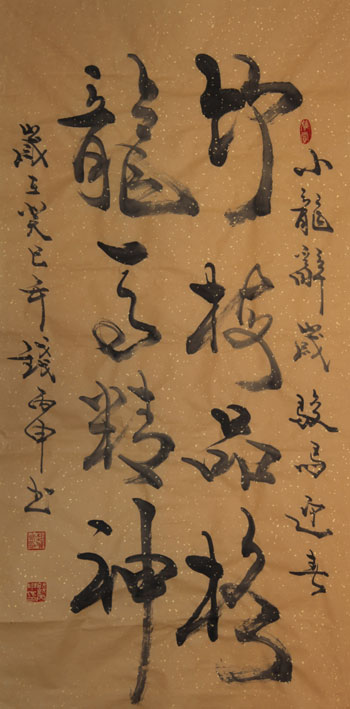 小龍辭歲駿馬迎春
竹梅品格
龍馬精神
歲在癸巳年錢丙申书